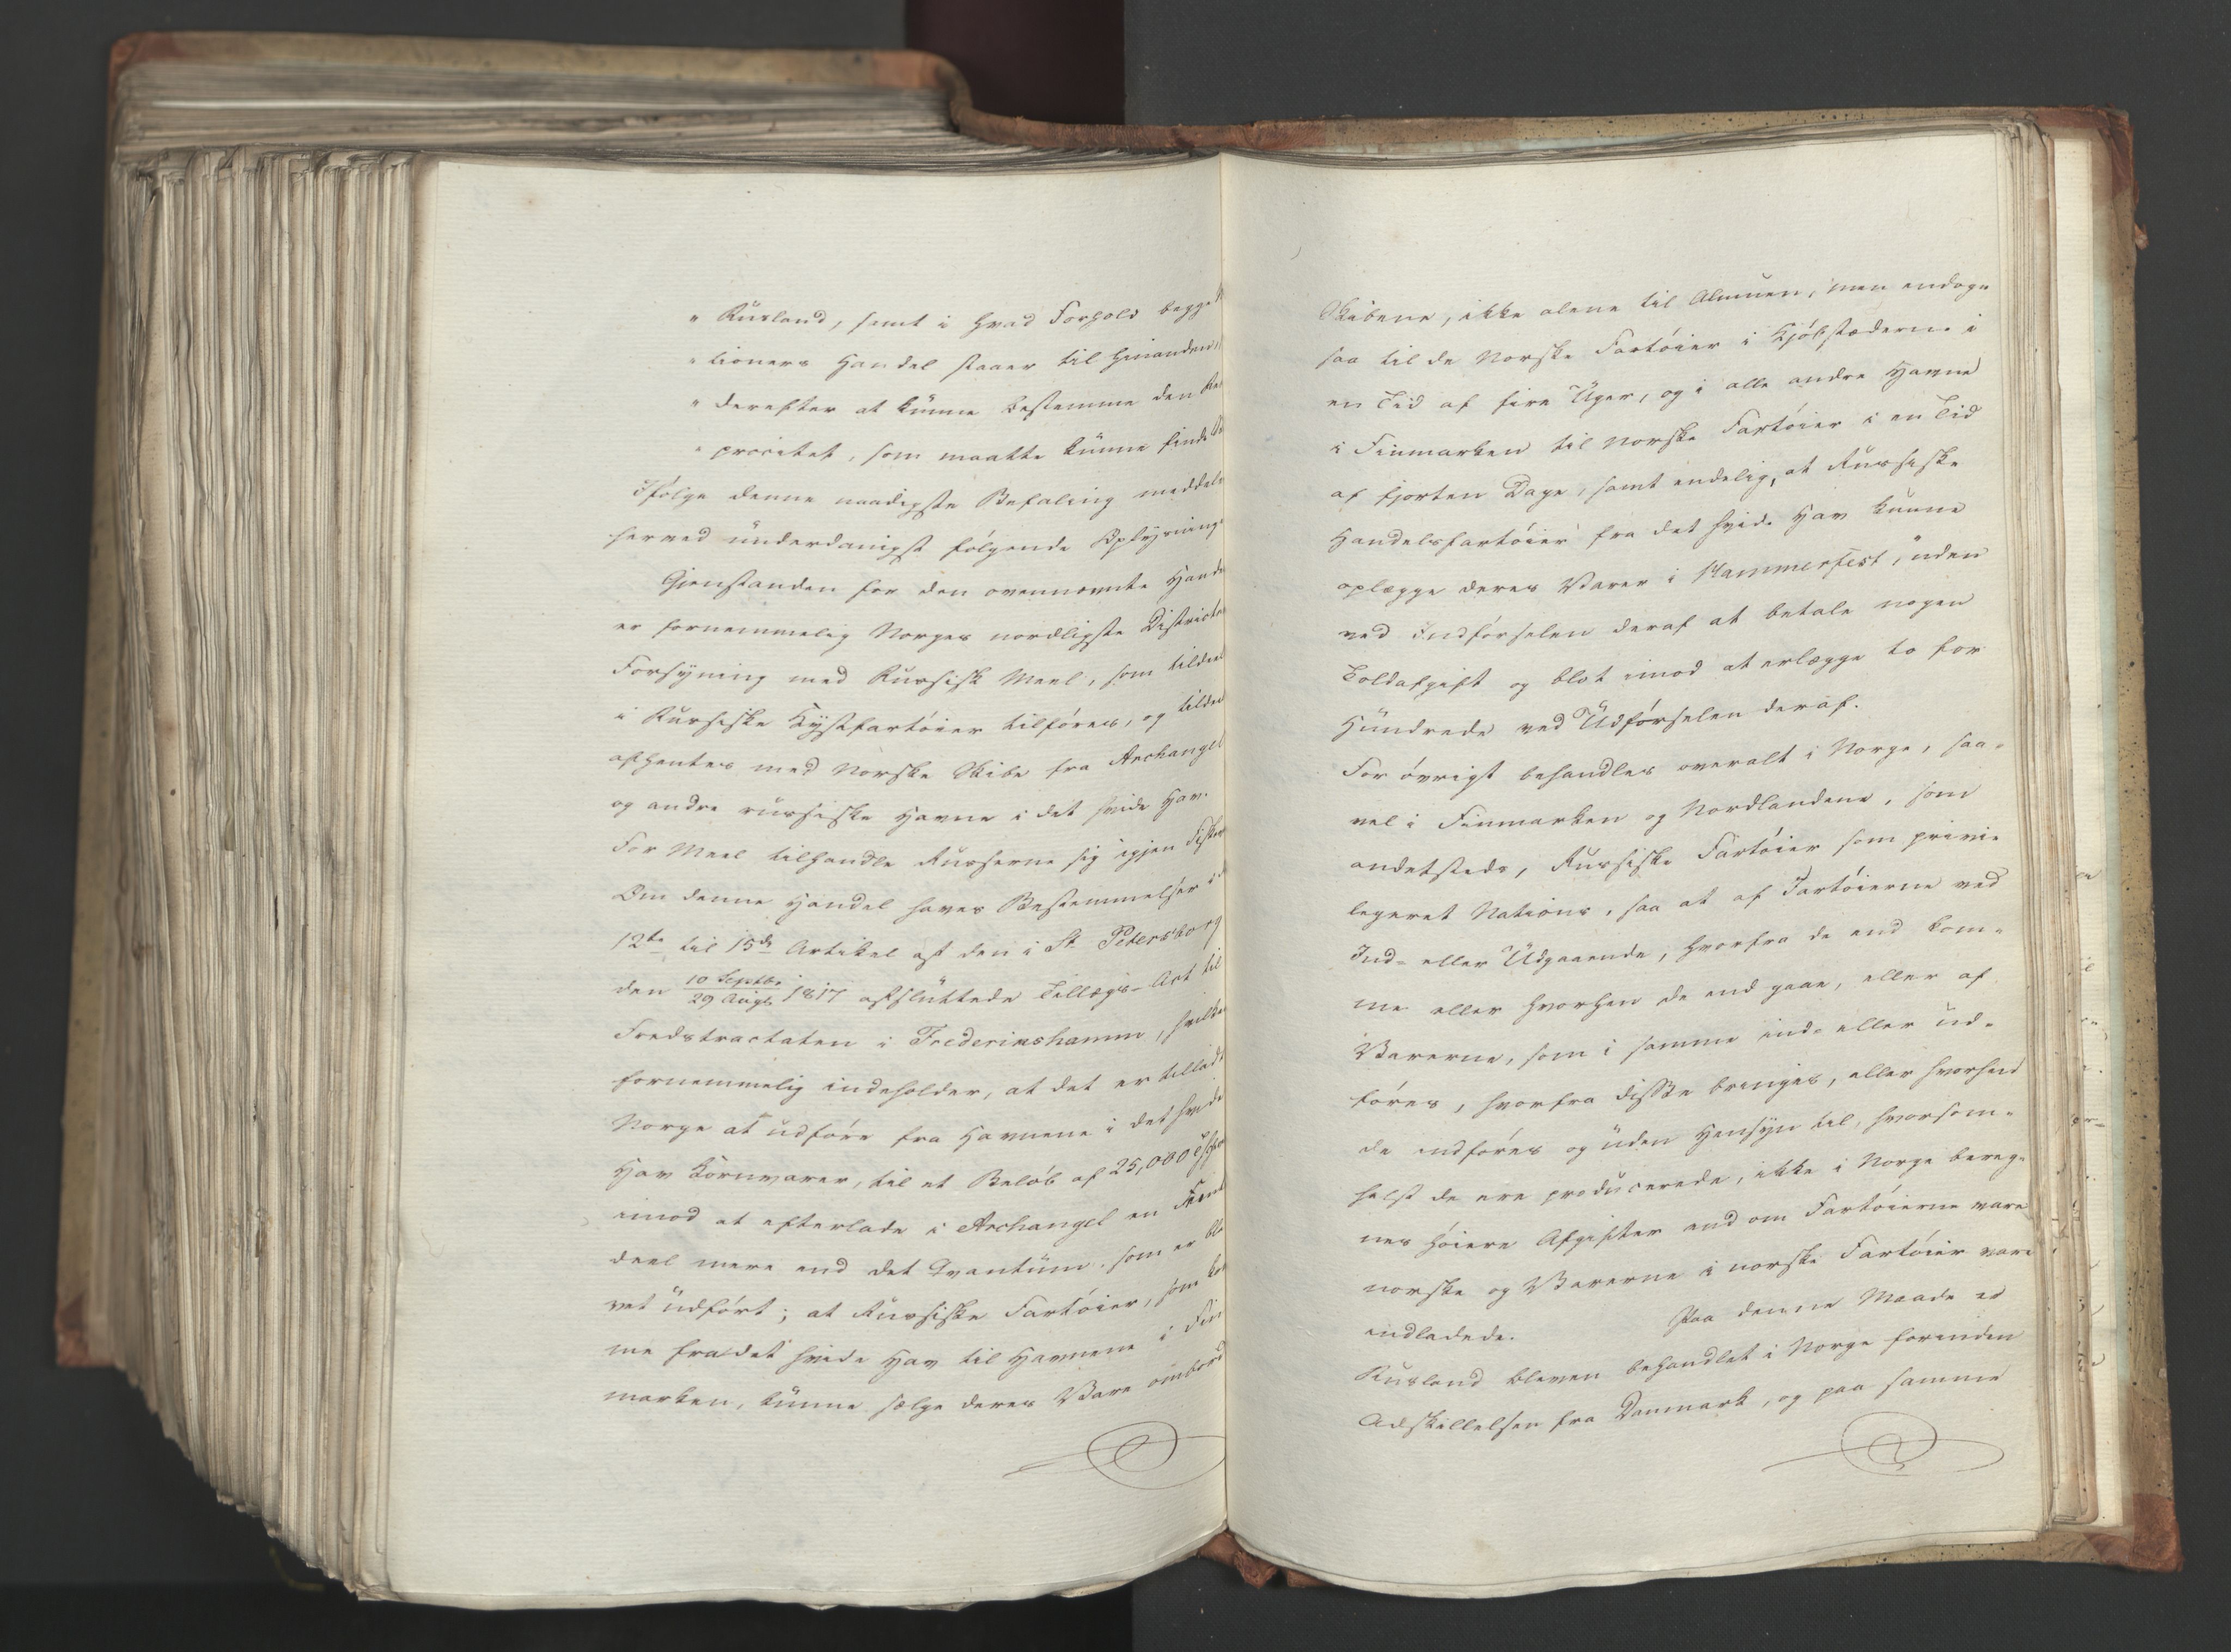 " Rusland, samt i hvad Forhold begge
" tioners Handel staaer til hinanden,
" derefter at kunne bestemme den
" procitet, som maatte kunne finde
Ifølge denne naadigste Befaling meddele
herved underdanigst følgende Oplysning
Gjenstanden for den ovennævnte Hande
er fornemmelig Norges nordligste Districte
Forsyning med Russisk Meel, som tildeel
i Russiske Kystfartöier tilföres, og tildeel
afhentes med Norske Skibe fra Archangel
og andre russiske Havne i det hvide Hav.
For Meel tilhandle Russerne sig igjen Fiske
Om denne Handel haves Bestemmelser i
12te til 15de Artikel af den i St Petersborg
den 10 Septbr / 29 Augs 1817 afsluttede Tillægs-Act til
Fredstractaten i Frederikshamm, hvilke
fornemmelig indeholder, at det er tilladt
Norge at udföre fra Havnene i det hvide
Hav Kornvarer, til et Belöb af 25,000
imod at efterlade i Archangel en Fem
deel mere end det Qvantum, som er ble
vet udfört; at Russiske Fartöier, som kom
me fra det hvide Hav til Havnene i Fin
marken, kunne sælge deres Vare ombord
Skibene, ikke alene til Almuen, men endog
saa til de Norske Fartöier i Kjöbstæderne i
en Tid af fire Uger, og i alle andre Havne
i Finmarken til Norske Fartöier i en Tid
af fjorten Dage, samt endelig, at Russiske
Handelsfartöier fra det hvide Hav kunne
oplægge deres Varer i Hammerfest, uden
ved Indförselen deraf at betale nogen
Toldafgift og blot imod at erlægge to for
Hundrede ved Udförselen deraf.
For övrigt behandles overalt i Norge, saa-
vel i Finmarken og Nordlandene, som
andetsteds, Russiske Fartöier som privi-
legeret Nations, saa at af Fartöierne ved
Ind- eller Udgaaende, hvorfra de end kom-
me eller hvorhen de end gaae, eller af
Varerne, som i samme ind- eller ud-
föres, hvorfra disse bringes, eller hvorhen
de indföres og uden Hensyn til, hvorsom-
helst de ere producerede, ikke i Norge bereg-
nes höiere Afgifter end om Fartöierne vare
norske og Varerne i norske Fartöier vare
indladede. Paa denne Maade er
Rusland bleven behandlet i Norge forinden
Adskillelsen fra Danmark, og paa samme